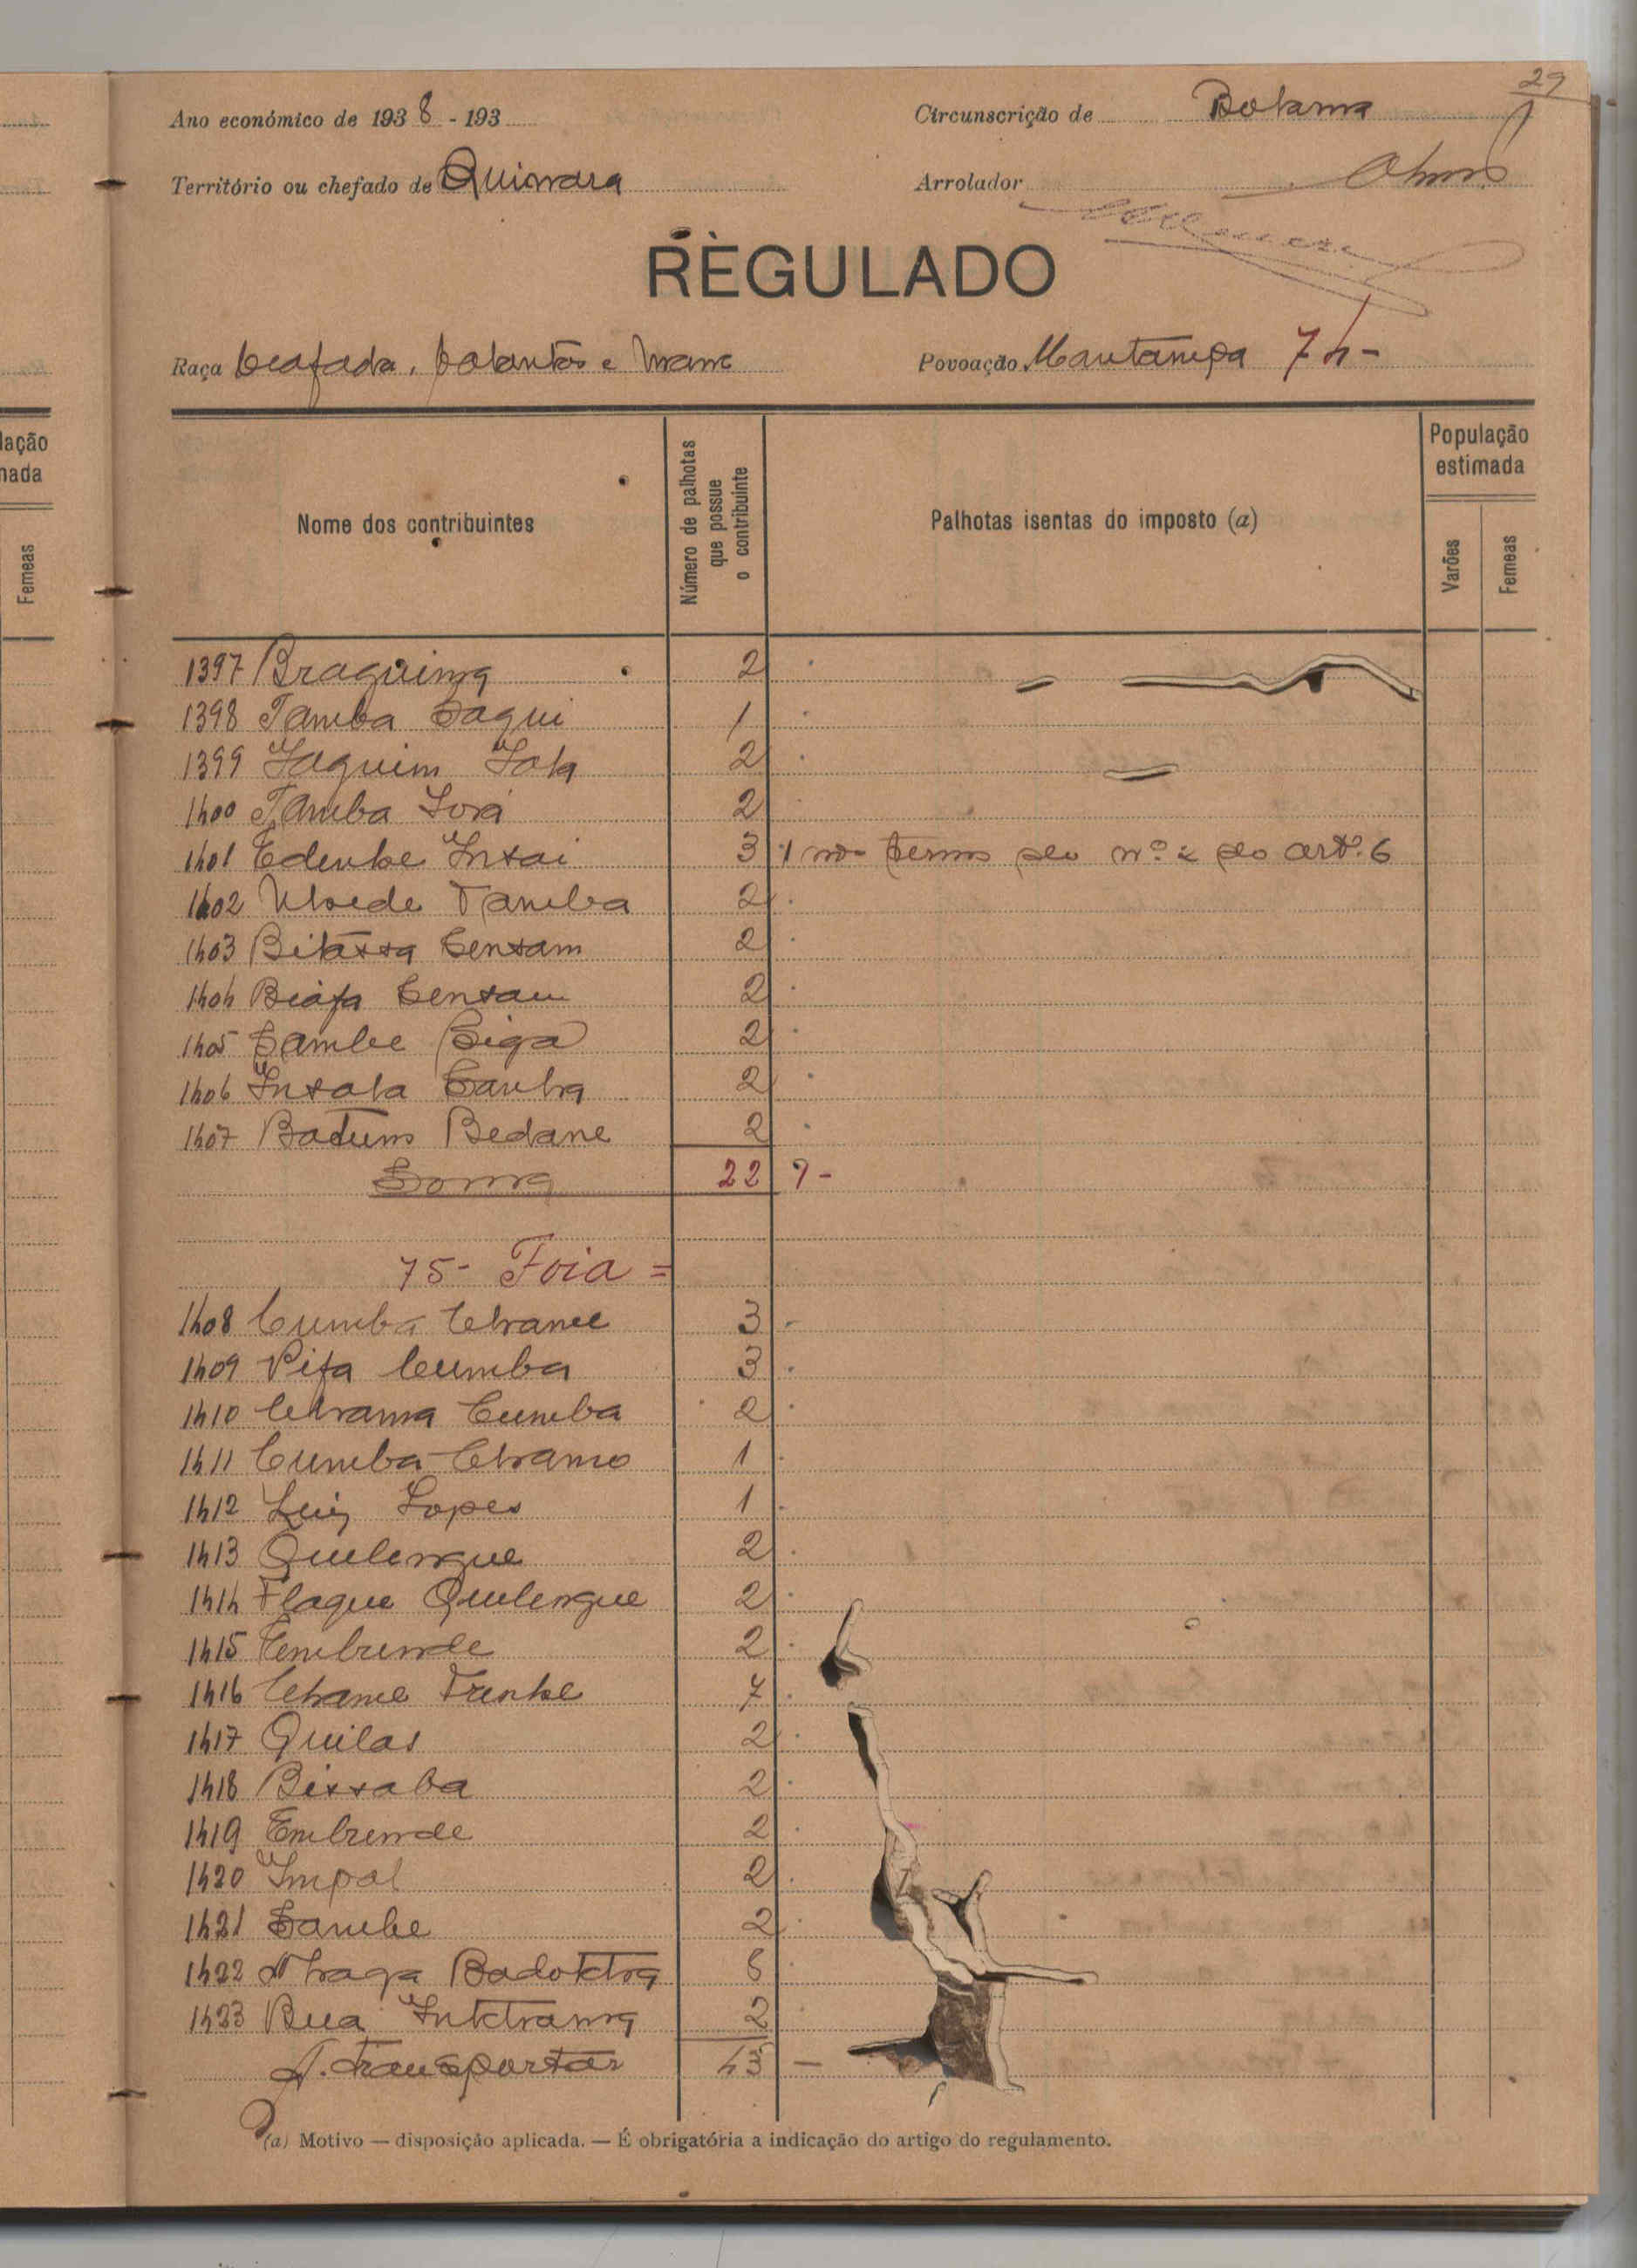 29
Ano económico de 1938 - 193
Circunscrição de Bolama
Território ou chefado de Quinara
Arrolador
REGULADO
Raça Beafada, balantas e
Povoação Mantampa 74-
lação
nada
Femeas
Nome dos contribuintes
Número de palhotas que possue o contribuinte
Palhotas isentas do imposto (a)
População estimada
Varões
Femeas
1397 Braquima 2
1398 Tamba Saqui 1
1399 Jaquim Jola 2
1400 Tamba Jorá 2
1401 Edenhe Insai 3 1 nos termos do nº 2 do artº. 6
1402 Ulsede Tamba 2
1403 Bitassa Sensam 2
1404 Biafa Sensau 2
1405 Sambe Biga 2
1406 Insala Sanha 2
1407 Batum Bedane 2
Soma 22
75- Foia =
1408 Cumba Chame 3
1409 Pifa Cumba 3
1410 Chrama Cumba 2
1411 Cumba Chramo 1
1412 Luiz Lopes 1
1413 Quelengue 2
1414 Flaque Quelengue 2
1415 Embunde 2
1416 Chame Fanhe 7
1417 Quilas 2
1418 Bissaba 2
1419 Embunde 2
1420 Impal 2
1421 Sambe 2
1422 Badoktna 6
1423 Bua Inktrama 2
A. transportar 43 —
(a) Motivo — disposição aplicada. — É obrigatória a indicação do artigo do regulamento.